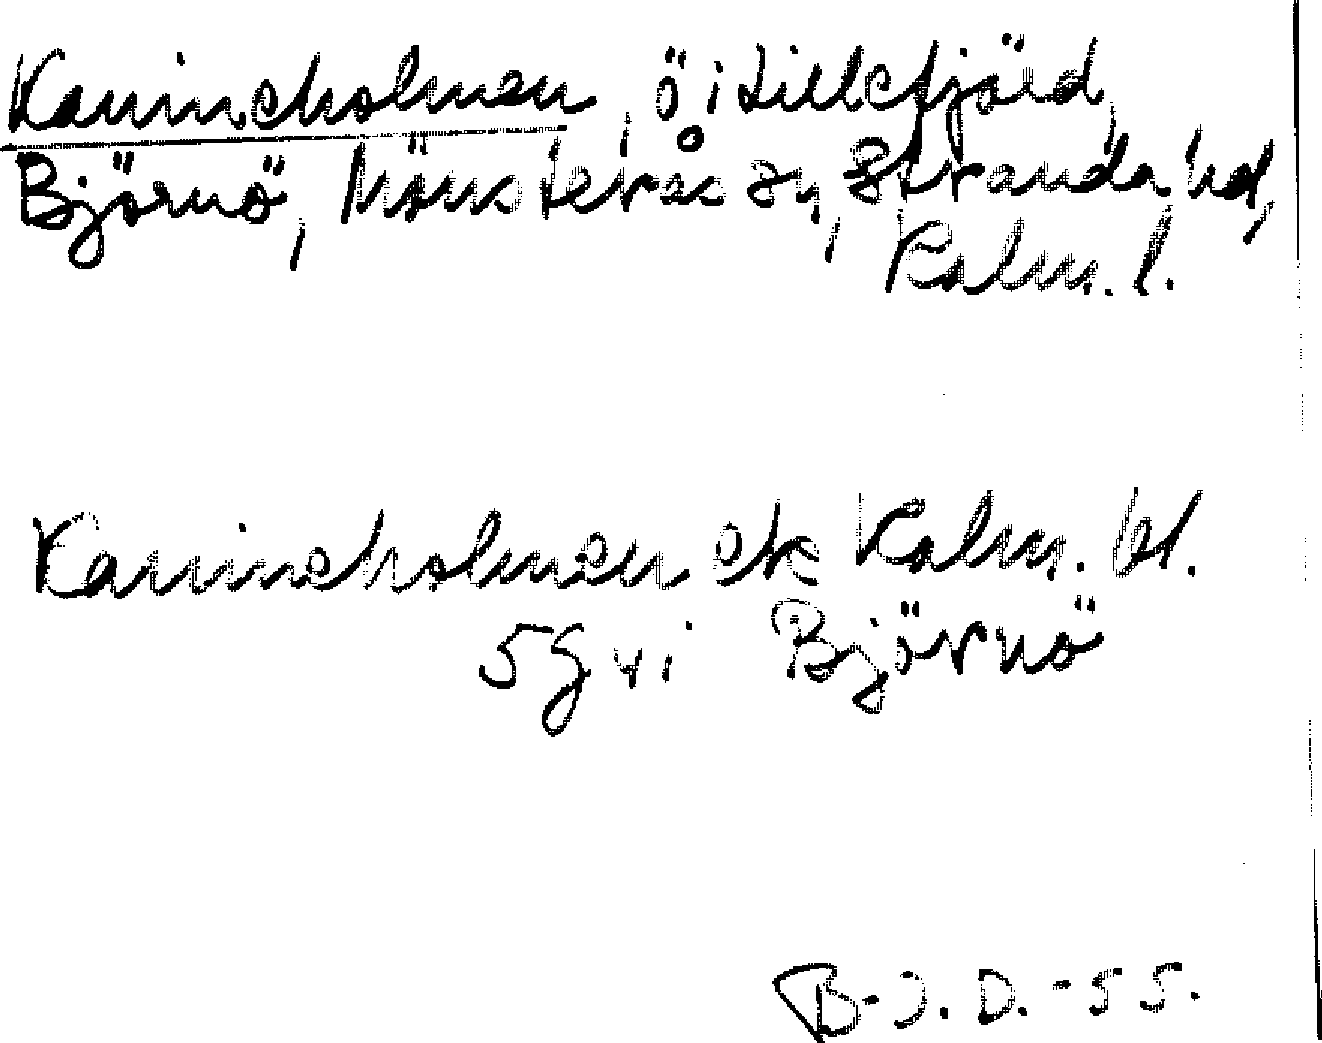 Kanineholmen, ö i Lillefjärd,
Björnö, Mönsterås sn, Stranda hd,
Kalm. l.
Kanineholmen ek Kalm. bl.
5G vi Björnö
B-J. D. -55.